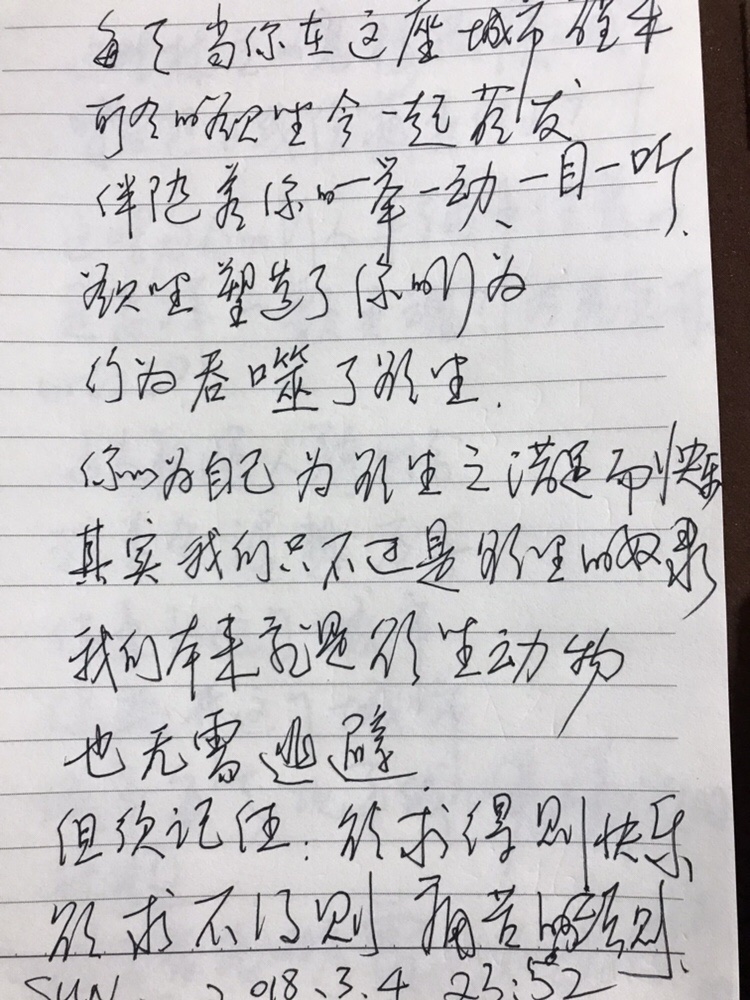 每天当你在这座城市醒来
的欲望会一起发
伴随着你的一举一动、一目一听、
欲望塑造了你的行为
行为吞噬了欲望.
你以为自己为欲望之满足而快乐
其实我们只不过是欲望的奴隶
我们本来就是欲望动物
也无需逃避
但须记住:欲求得则快乐
欲求不得则痛苦的则.
SUN. 2018.3.4 23:52